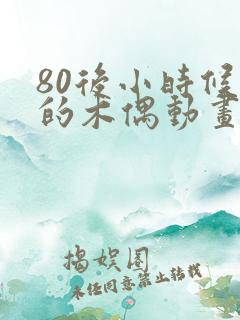 80後小時候
的木偶動畫
揭娛圈
未经同意禁止转载